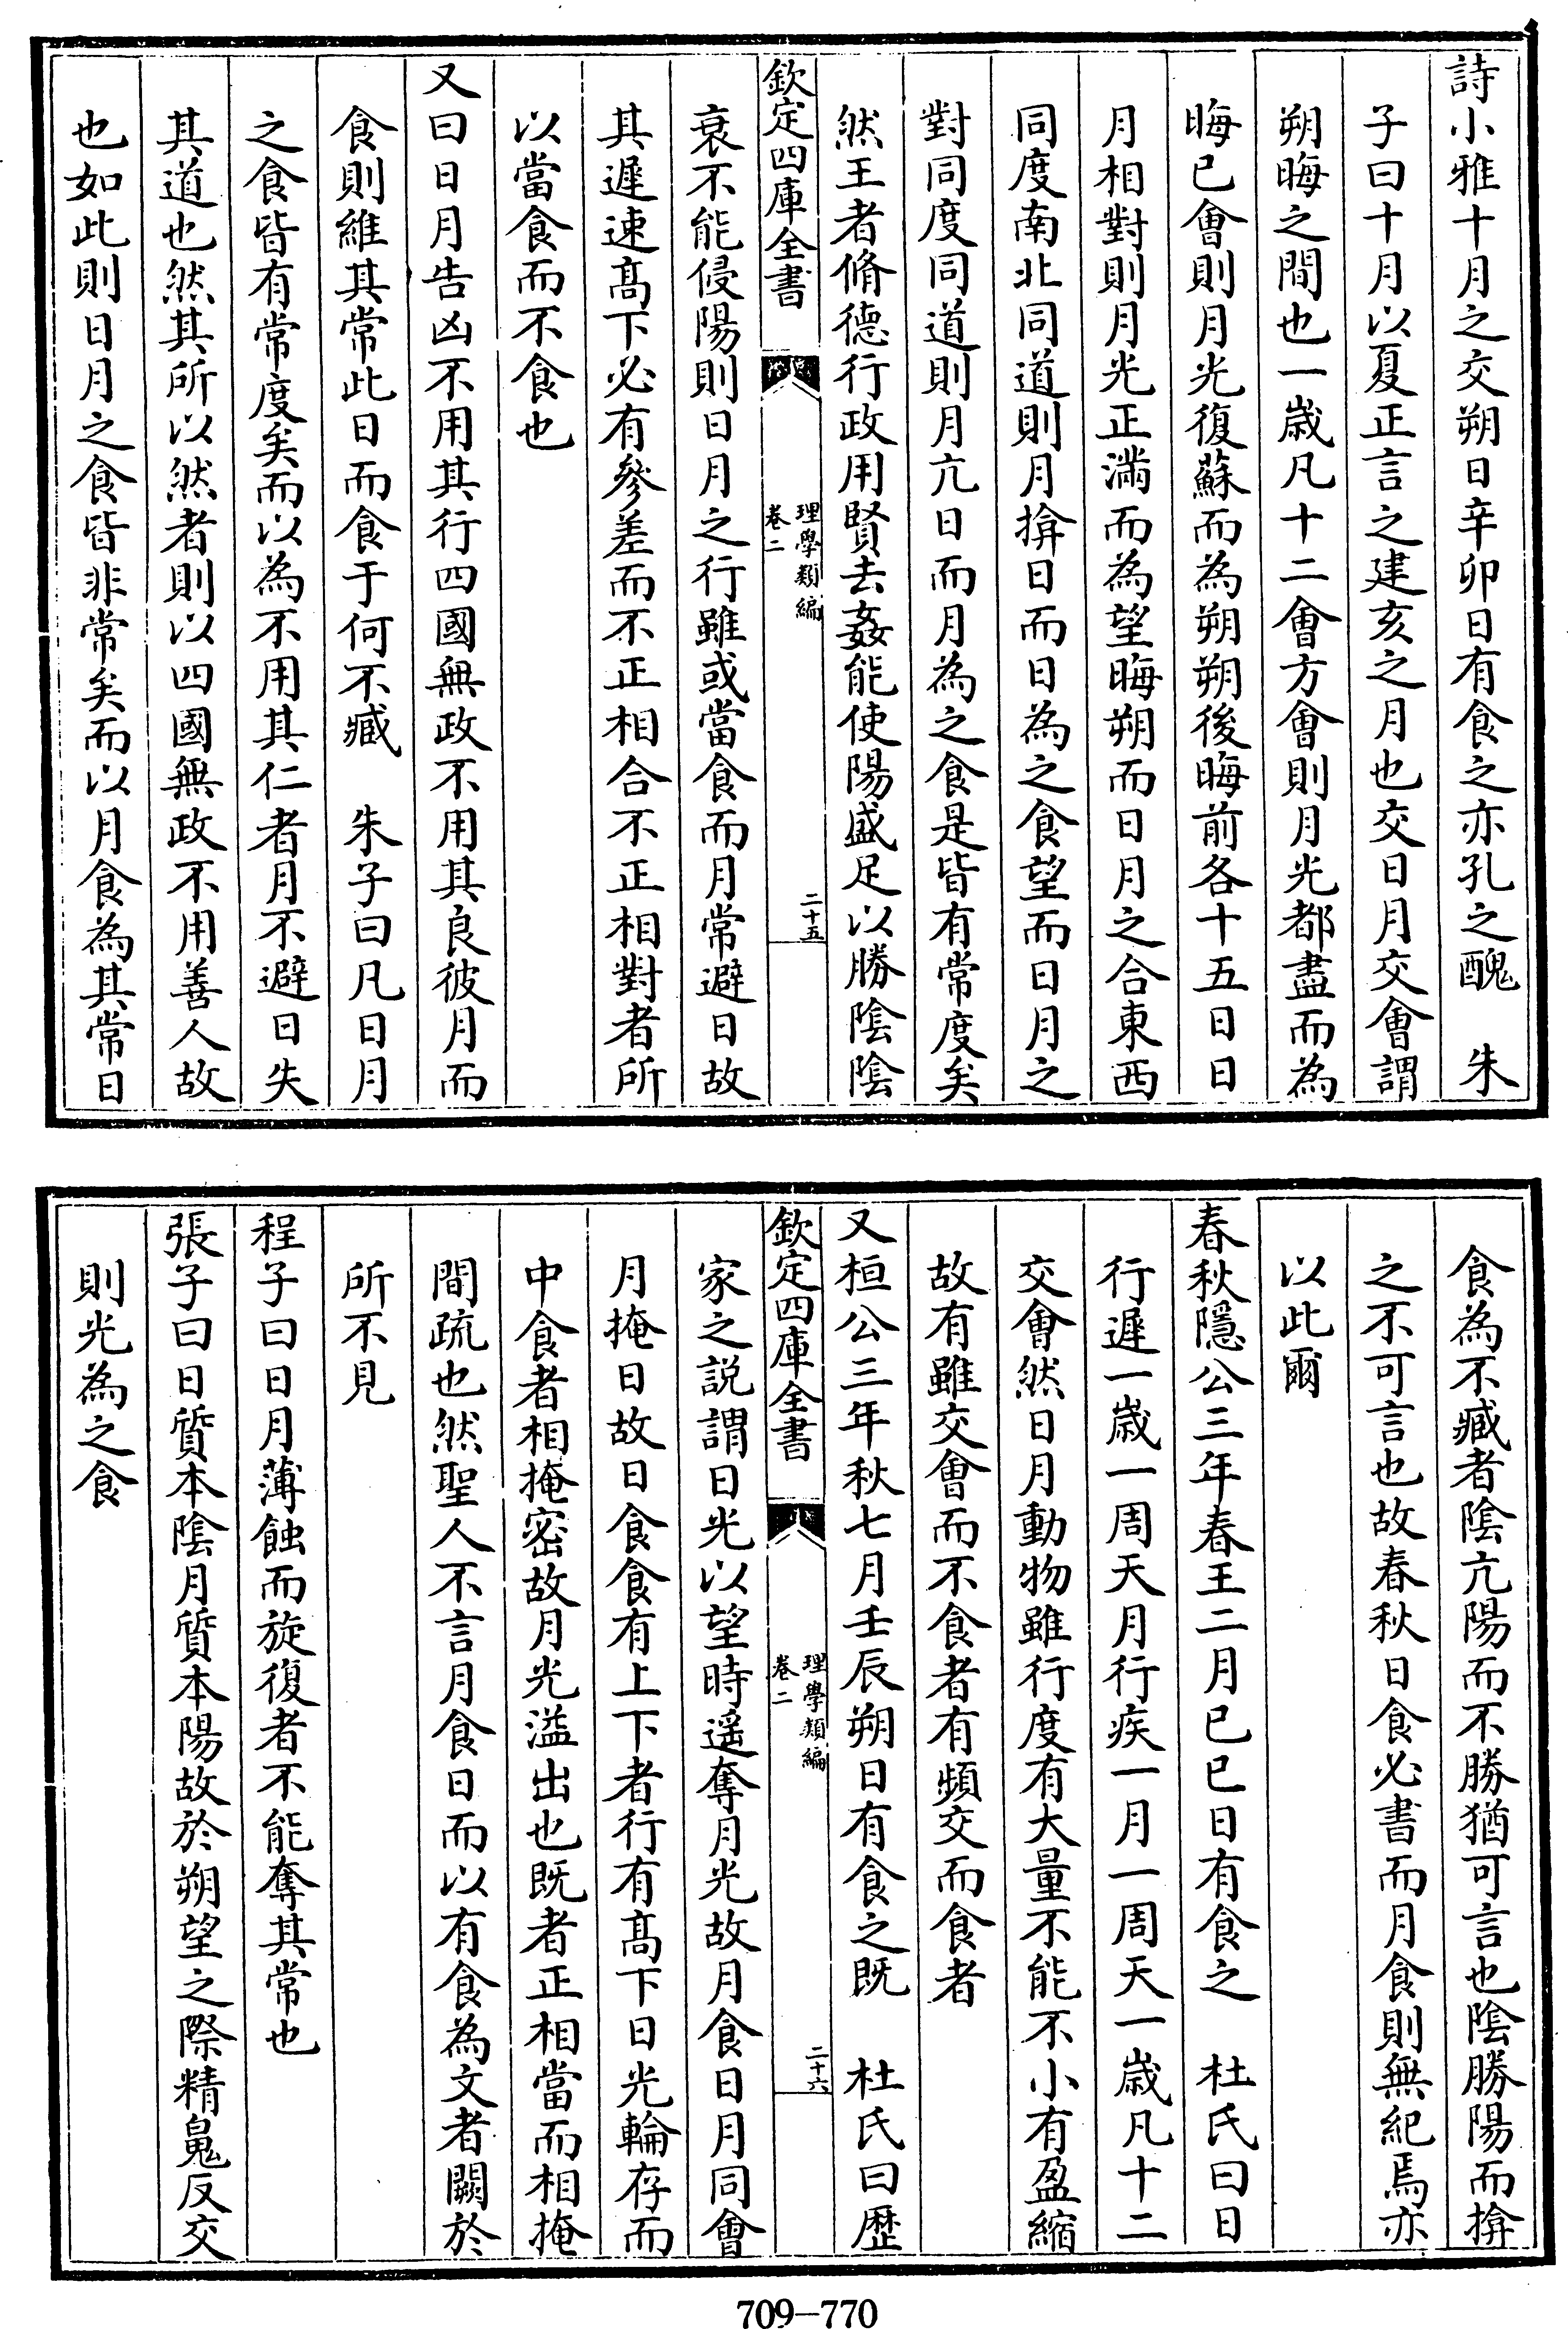 詩小雅十月之交朔日辛卯日有食之亦孔之醜　朱
子曰十月以夏正言之建亥之月也交日月交會謂
朔晦之間也一歳凡十二會方會則月光都盡而為
晦已會則月光復蘇而為朔朔後晦前各十五日日
月相對則月光正滿而為望晦朔而日月之合東西
同度南北同道則月揜日而日為之食望而日月之
對同度同道則月亢日而月為之食是皆有常度矣
然王者脩德行政用賢去姦能使陽盛足以勝陰陰
欽定四庫全書
理學類編
卷二
二十五
衰不能侵陽則日月之行雖或當食而月常避日故
其遲速髙下必有參差而不正相合不正相對者所
以當食而不食也
又曰日月告凶不用其行四國無政不用其良彼月而
食則維其常此日而食于何不臧　朱子曰凡日月
之食皆有常度矣而以為不用其仁者月不避日失
其道也然其所以然者則以四國無政不用善人故
也如此則日月之食皆非常矣而以月食為其常日
食為不臧者陰亢陽而不勝猶可言也陰勝陽而揜
之不可言也故春秋日食必書而月食則無紀焉亦
以此爾
春秋隱公三年春王二月已巳日有食之　杜氏曰日
行遲一歳一周天月行疾一月一周天一歳凡十二
交會然日月動物雖行度有大量不能不小有盈縮
故有雖交會而不食者有頻交而食者
又桓公三年秋七月壬辰朔日有食之既　杜氏曰歴
欽定四庫全書
理學類編
卷二
二十六
家之説謂日光以望時遥奪月光故月食日月同會
月掩日故日食食有上下者行有髙下日光輪存而
中食者相掩密故月光溢出也既者正相當而相掩
間疏也然聖人不言月食日而以有食為文者闕於
所不見
程子曰日月薄蝕而旋復者不能奪其常也
張子曰日質本陰月質本陽故於朔望之際精鬼反交
則光為之食
709—770